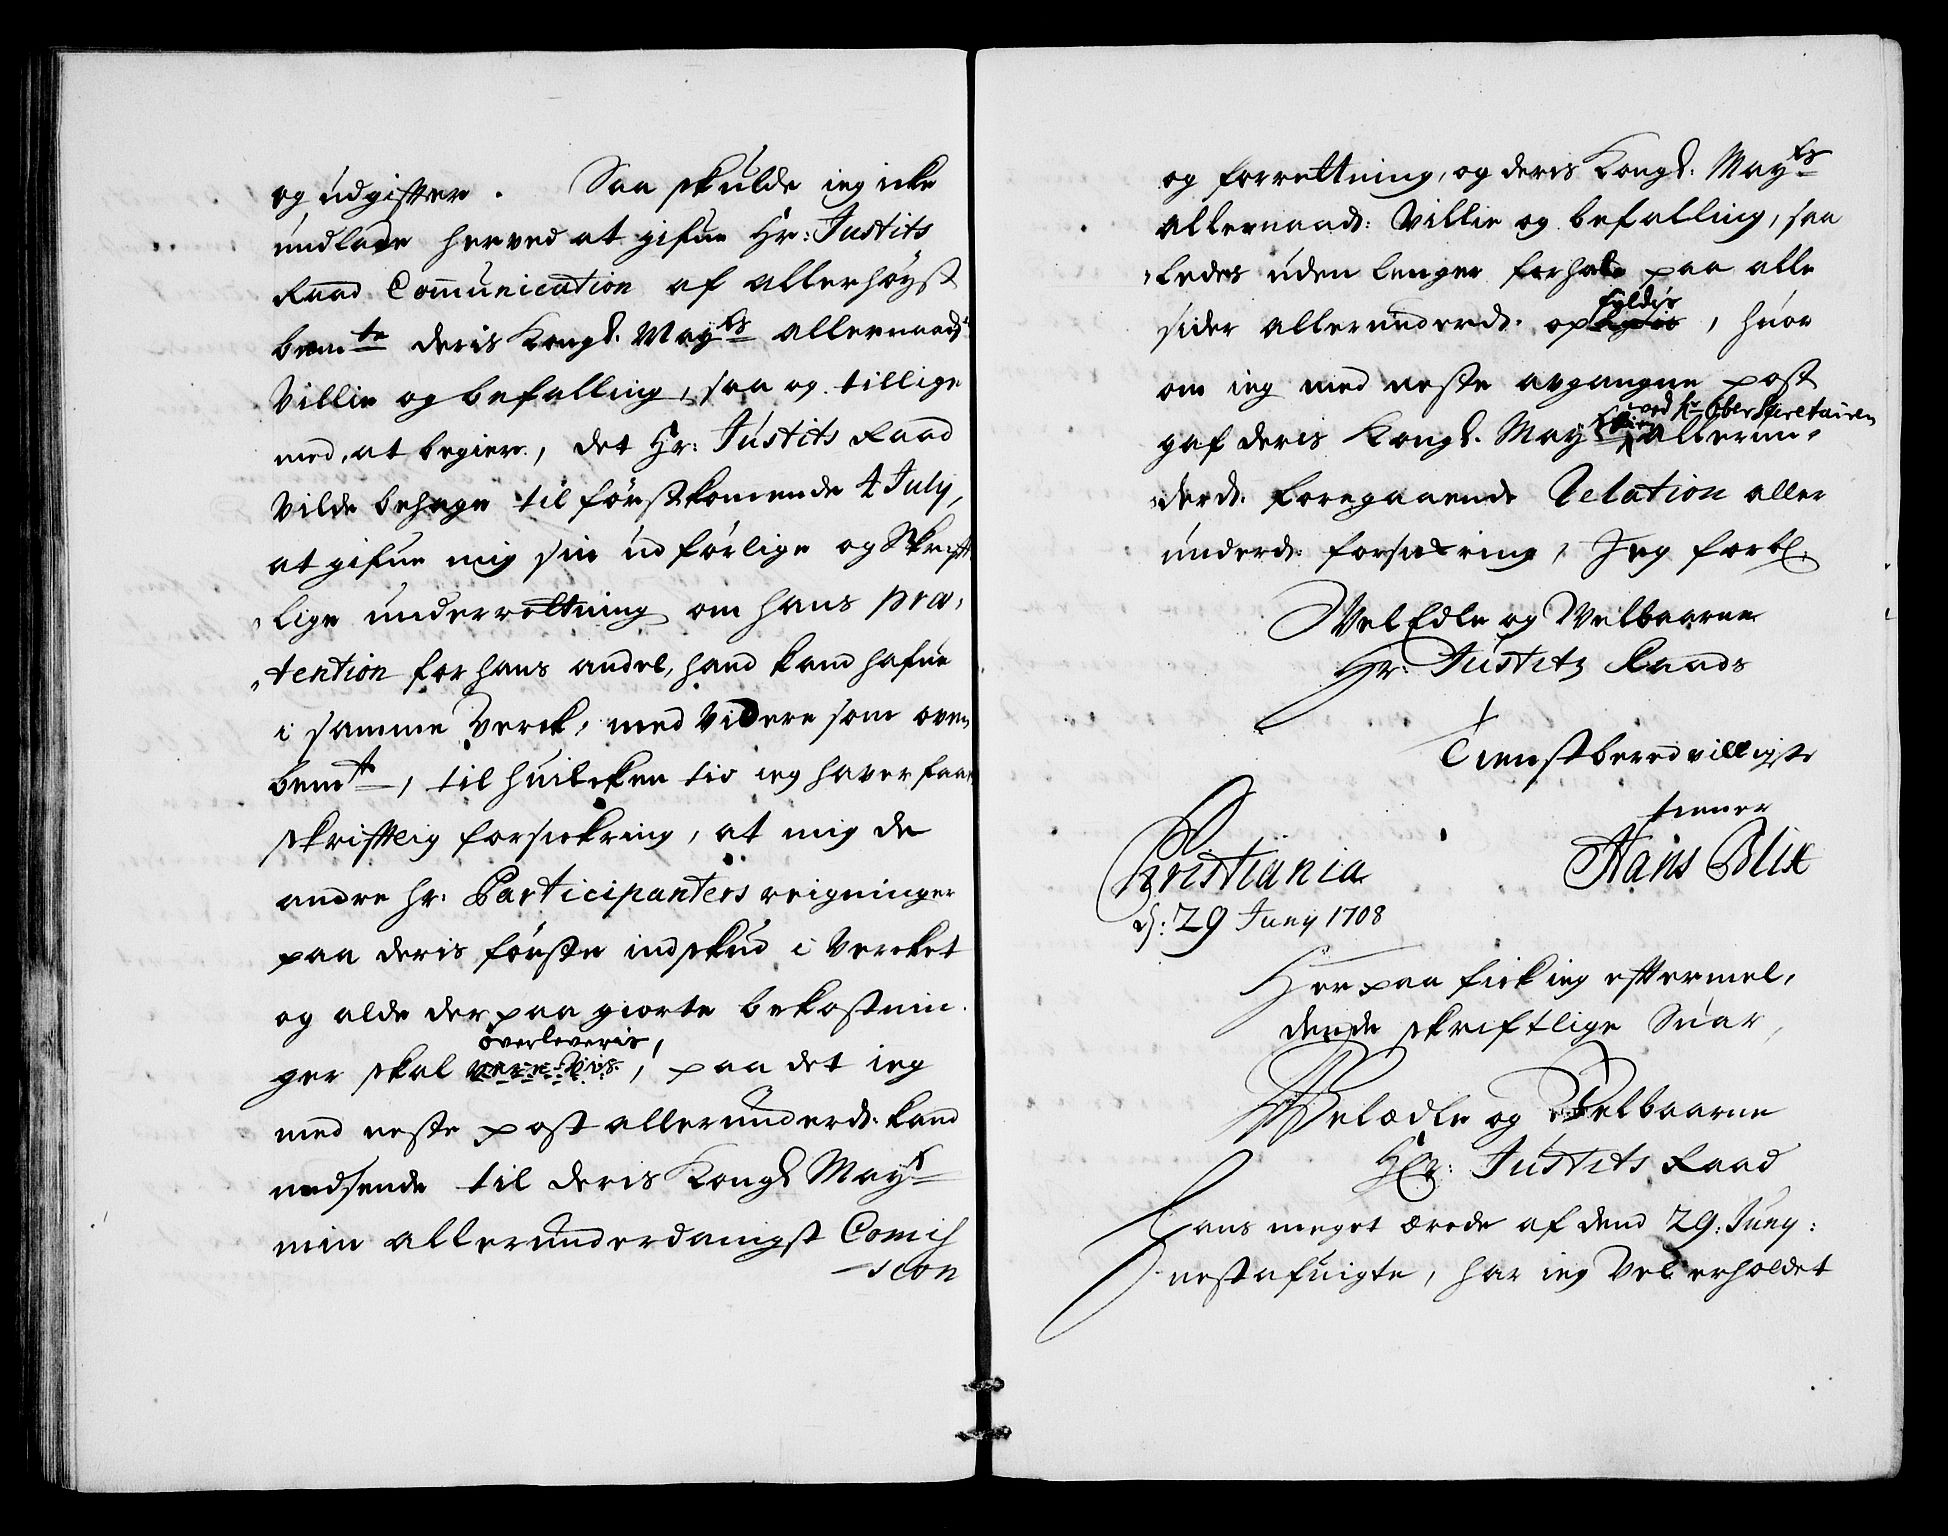 og udgifter. Saa skulde ieg icke
undlade herved at gifue Hr: Justits
Raad Communication af allerhöyst
bemte deris Kongl. Mayts allernaads:
Villie og befalling, saa og tillige
med, at begiere, det Hr: Justits Raad
vilde behage til förstkomende 4 July,
at gifue mig sin udförlige og Skrift
lige underrettning om hans præ,
tention for hans andel, hand kand hafue
i samme Verck, med videre som oven
bemte, til huilcken tid ieg haver faaet
skrifftlig forsickring, at mig de
andre hr: Participanters reigninger
paa deris förste indskud i Vercket
og alde der paa giorte bekostnin
overleveris,
ger skal, paa det ieg
med neste post allerunderd. kand
nedsende til deris Kongl Mayt
min allerunderdanigst Comis
sion
og forrettning, og deris Kongl. Mayts
allernaads: Villie og befalling, saa
ledes uden lenger forhale paa alle
fyldis
sider allerunderd. op, huor
om ieg med neste avgangne post
ved hr Ober Secretairen
gaf deris Kongl. May allerun
derd. foregaaende Relation aller
underd. forsickring, Jeg forbl.
VelEdle og Velbaarne
Hr: Justitz Raads
Tienstberedvilligste
tienner
Christiania Hans Blix
d: 29 Juny 1708
Her paa fick ieg eftermel,
dende skriftlige Suar,
Velædle og Velbaarne
Hr: Justits Raad
Hans meget ærede af dend 29: Juny:
nestafuigte, har ieg Vel erholdet